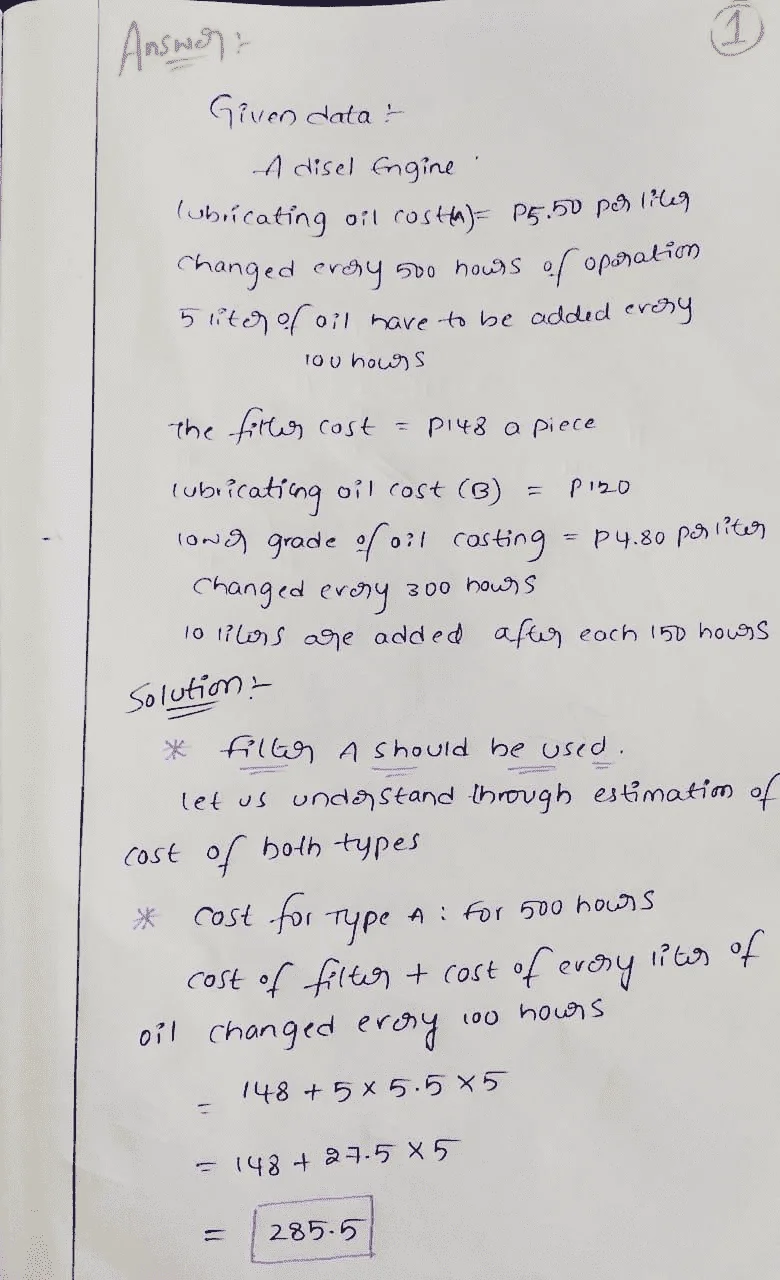 Answer :-
1
Given data :-
A disel Engine
lubricating oil cost(A)= P5.50 per liter
changed every 500 hours of operation
5 liter of oil have to be added every
100 hours
The filter cost = P148 a piece
lubricating oil cost (B) = P120
lower grade of oil costing = P4.80 per liter
Changed every 300 hours
10 liters are added after each 150 hours
Solution :-
* filter A should be used.
let us understand through estimation of
cost of both types
* cost for Type A : for 500 hours
cost of filter + cost of every liter of
oil changed every 100 hours
= 148 + 5 x 5.5 x 5
= 148 + 27.5 x 5
= 285.5